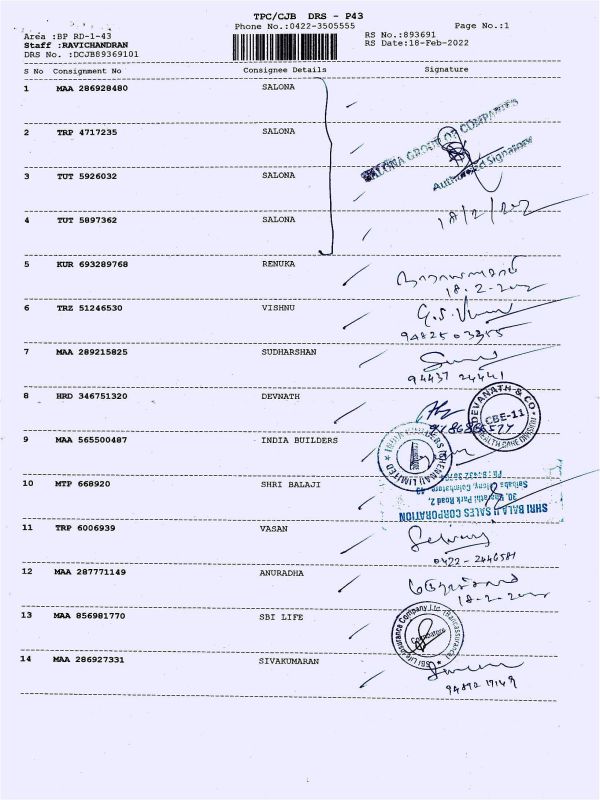 TPC/CJB DRS - P43
Phone No.:0422-3505555
Page No.:1
Area :BP RD-1-43
Staff :RAVICHANDRAN
DRS No. :DCJB89369101
RS No.:893691
RS Date:18-Feb-2022
S No Consignment No Consignee Details Signature
1 MAA 286928480 SALONA
2 TRP 4717235 SALONA
SALONA GROUP OF COMPANIES
Authorised Signatory
3 TUT 5926032 SALONA
4 TUT 5897362 SALONA
18/2/202
5 KUR 693289768 RENUKA
18.2.202
6 TRZ 51246530 VISHNU
G.S.
7 MAA 289215825 SUDHARSHAN
94437 24441
8 HRD 346751320 DEVNATH
DEVANATH & CO.
CBE-11
9 MAA 565500487 INDIA BUILDERS
INDIA BUILDERS (CHENNAI) LIMITED
10 MTP 668920 SHRI BALAJI
SHRI BALAJI SALES CORPORATION
11 TRP 6006939 VASAN
0422-2446581
12 MAA 287771149 ANURADHA
18.2.202
13 MAA 856981770 SBI LIFE
SBI Life Insurance Company Ltd.
Coimbatore
14 MAA 286927331 SIVAKUMARAN